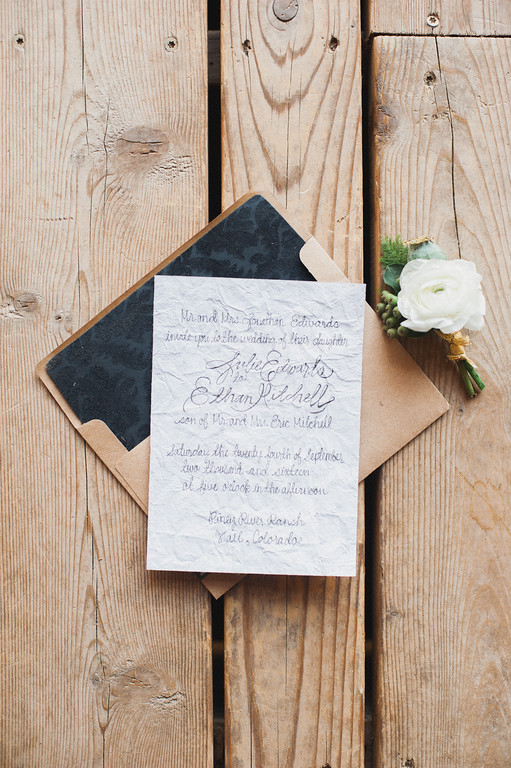 Mr and Mrs. Jonathan Edwards
invite you to the wedding of their daughter
Julie Edwards
to
Ethan Mitchell
son of Mr and Mrs. Eric Mitchell
Saturday the twenty fourth of September
two thousand and sixteen
at five o'clock in the afternoon
Piney River Ranch
Vail, Colorado